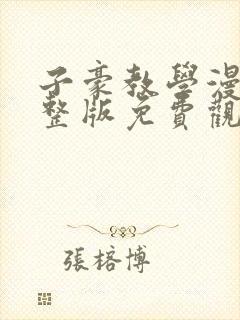 子豪教學漫
整版免費觀
張榕博